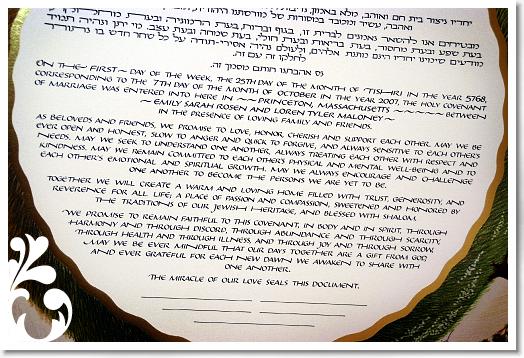 יחדיו ניצור בית חם ואוהב, מלא באמון,
ואהבה, עשיר ומכובד במסורות של מורשתנו
מבטיחים אנו להשאר נאמנים לברית זו, בגוף וברוח, בעת הרמוניה ובעת
בעת שפע ובעת מחסור, בעת בריאות ובעת חולי, בעת שמחה ובעת עצב. מי יתן ונהיה תמיד
מודעים שימינו יחדיו הינם מתנת אלהים, ולעולם נהיה אסירי-תודה על כל שחר חדש בו
לחלקה זה עם זה.
נס אהבתנו חותם מסמך זה.
ON THE ~ FIRST ~ DAY OF THE WEEK, THE 25TH DAY OF THE MONTH OF ~TISHRI~ IN THE YEAR 5768,
CORRESPONDING TO THE 7TH DAY OF THE MONTH OF OCTOBER IN THE YEAR 2007, THE HOLY COVENANT
OF MARRIAGE WAS ENTERED INTO HERE IN ~~ PRINCETON, MASSACHUSETTS ~~~~~~ BETWEEN
~ EMILY SARAH ROSEN AND LOREN TYLER MALONEY ~
IN THE PRESENCE OF LOVING FAMILY AND FRIENDS.
AS BELOVEDS AND FRIENDS, WE PROMISE TO LOVE, HONOR, CHERISH AND SUPPORT EACH OTHER. MAY WE BE
EVER OPEN AND HONEST, SLOW TO ANGER AND QUICK TO FORGIVE, AND ALWAYS SENSITIVE TO EACH OTHER'S
NEEDS. MAY WE SEEK TO UNDERSTAND ONE ANOTHER, ALWAYS TREATING EACH OTHER WITH RESPECT AND
KINDNESS. MAY WE REMAIN COMMITTED TO EACH OTHER'S PHYSICAL AND MENTAL WELL-BEING AND TO
EACH OTHER'S EMOTIONAL AND SPIRITUAL GROWTH. MAY WE ALWAYS ENCOURAGE AND CHALLENGE
ONE ANOTHER TO BECOME THE PERSONS WE ARE YET TO BE.
TOGETHER WE WILL CREATE A WARM AND LOVING HOME FILLED WITH TRUST, GENEROSITY, AND
REVERENCE FOR ALL LIFE; A PLACE OF PASSION AND COMPASSION, SWEETENED AND HONORED BY
THE TRADITIONS OF OUR JEWISH HERITAGE, AND BLESSED WITH SHALOM.
WE PROMISE TO REMAIN FAITHFUL TO THIS COVENANT, IN BODY AND IN SPIRIT, THROUGH
HARMONY AND THROUGH DISCORD, THROUGH ABUNDANCE AND THROUGH SCARCITY,
THROUGH HEALTH AND THROUGH ILLNESS, AND THROUGH JOY AND THROUGH SORROW.
MAY WE BE EVER MINDFUL THAT OUR DAYS TOGETHER ARE A GIFT FROM GOD,
AND EVER GRATEFUL FOR EACH NEW DAWN WE AWAKEN TO SHARE WITH
ONE ANOTHER.
THE MIRACLE OF OUR LOVE SEALS THIS DOCUMENT.